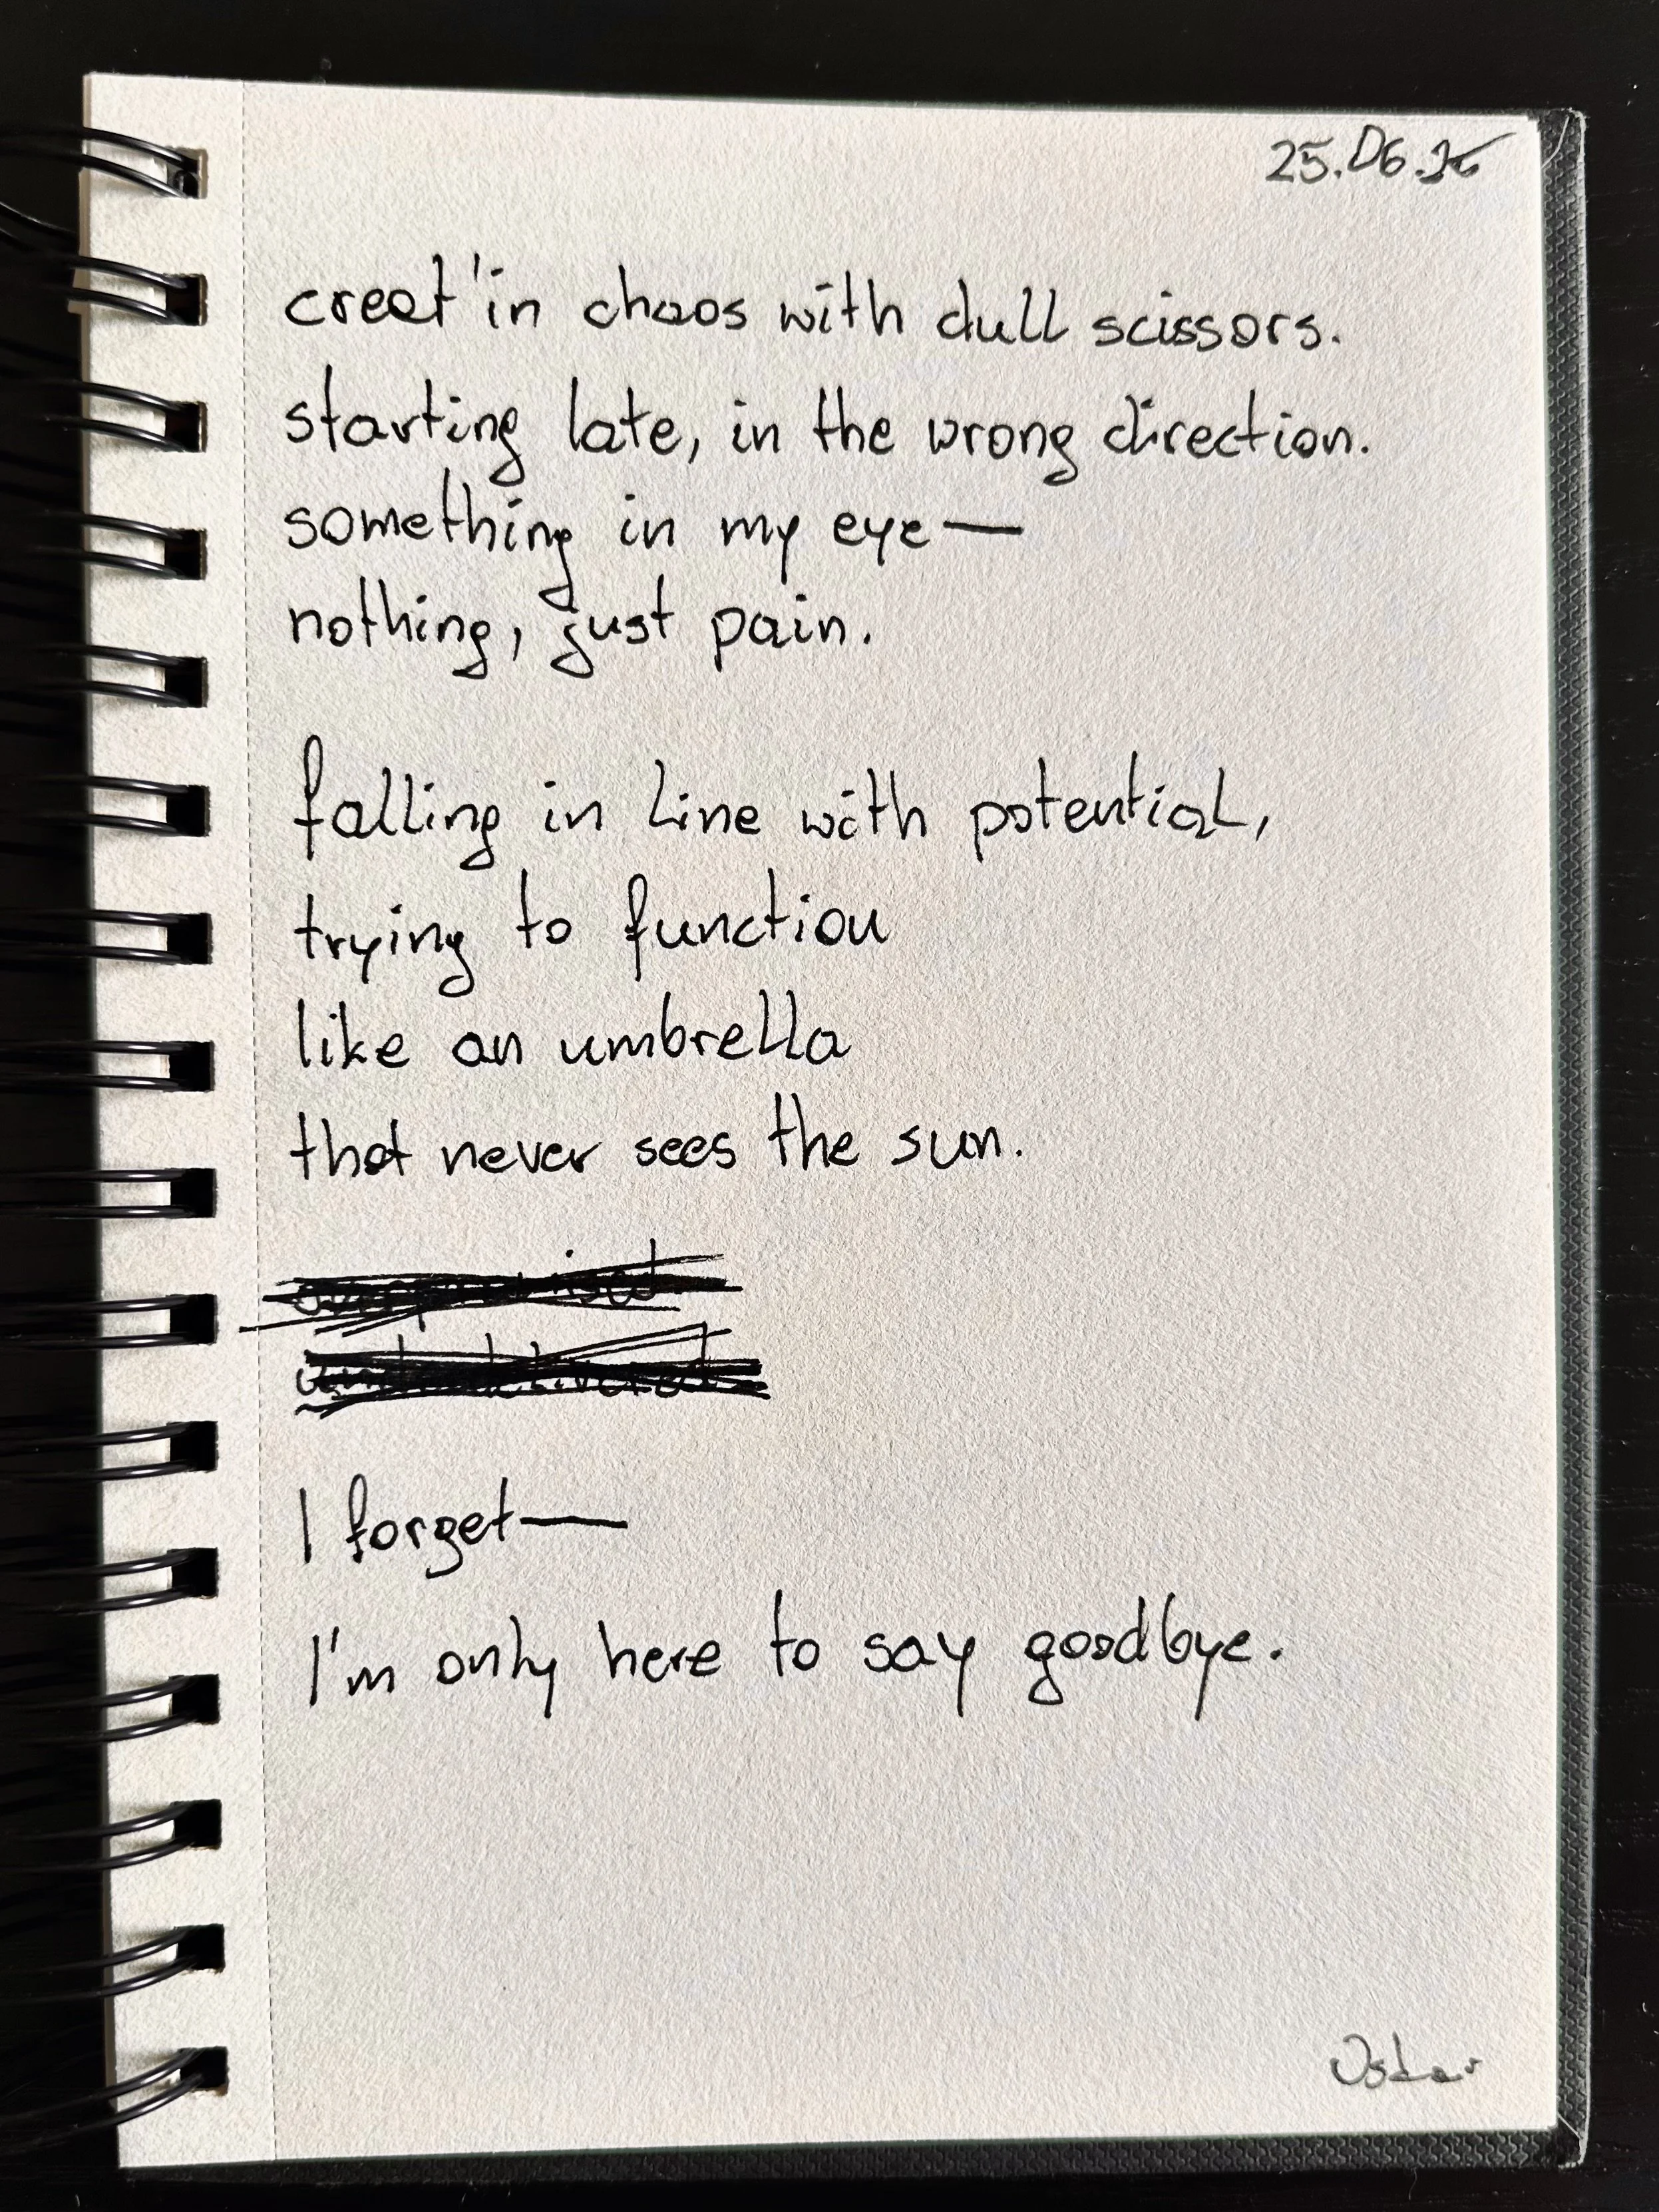 25.06.26
creat'in chaos with dull scissors.
starting late, in the wrong direction.
something in my eye—
nothing, just pain.
falling in line with potential,
trying to function
like an umbrella
that never sees the sun.
I forget—
I'm only here to say goodbye.
Oskar